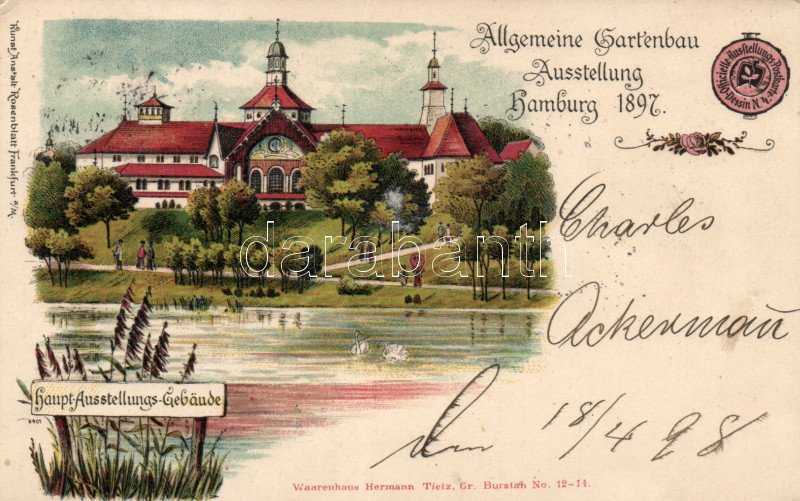 Allgemeine Gartenbau
Ausstellung
Hamburg 1897.
Officielle-Ausstellungs-Postkarte
Dessin N. 4.
Kunst-Anstalt Rosenblatt Frankfurt a/M.
Charles
Ackerman
18/4 98
Haupt-Ausstellungs-Gebäude
darabanth
Waarenhaus Hermann Tietz, Gr. Burstah No. 12-14.